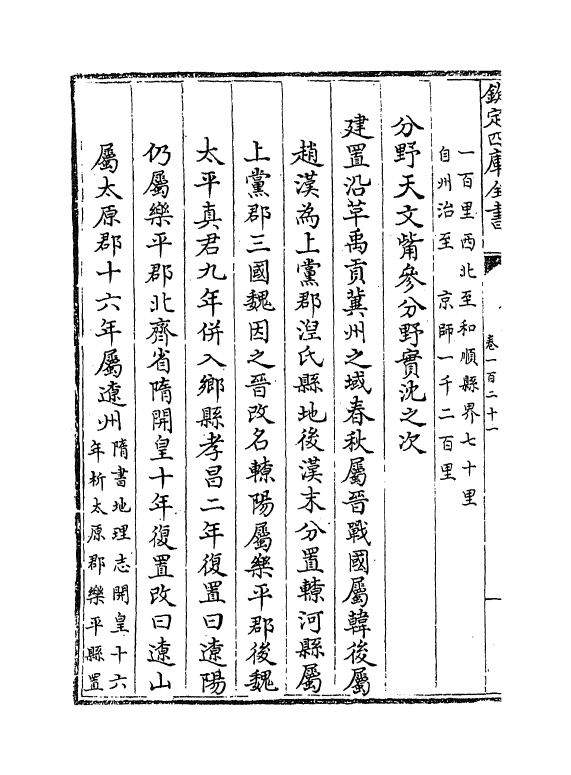 欽定四庫全書
卷一百二十一
一百里西北至和順縣界七十里
自州治至 京師一千二百里
分野天文觜參分野實沈之次
建置沿革禹貢冀州之域春秋屬晉戰國屬韓後屬
趙漢為上黨郡涅氏縣地後漢末分置轑河縣屬
上黨郡三國魏因之晉改名轑陽屬樂平郡後魏
太平真君九年併入鄉縣孝昌二年復置曰遼陽
仍屬樂平郡北齊省隋開皇十年復置改曰遼山
屬太原郡十六年屬遼州
隋書地理志開皇十六
年析太原郡樂平縣置